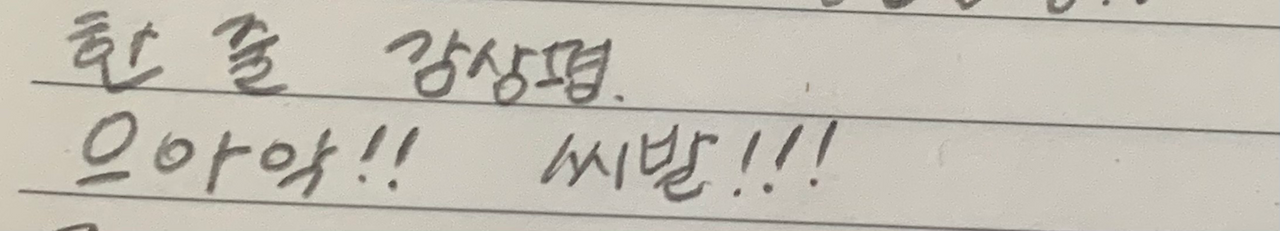 한 줄 감상평.
으아악!! 씨발!!!